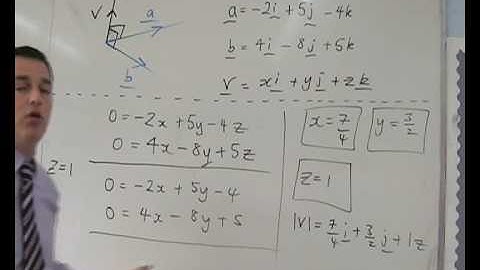 V
a
b
a = -2i + 5j - 4k
b = 4i - 8j + 5k
V = xi + yj + zk
0 = -2x + 5y - 4z
0 = 4x - 8y + 5z
z=1
0 = -2x + 5y - 4
0 = 4x - 8y + 5
x = 7/4
y = 3/2
z = 1
|V| = 7/4 i + 3/2 j + 1z